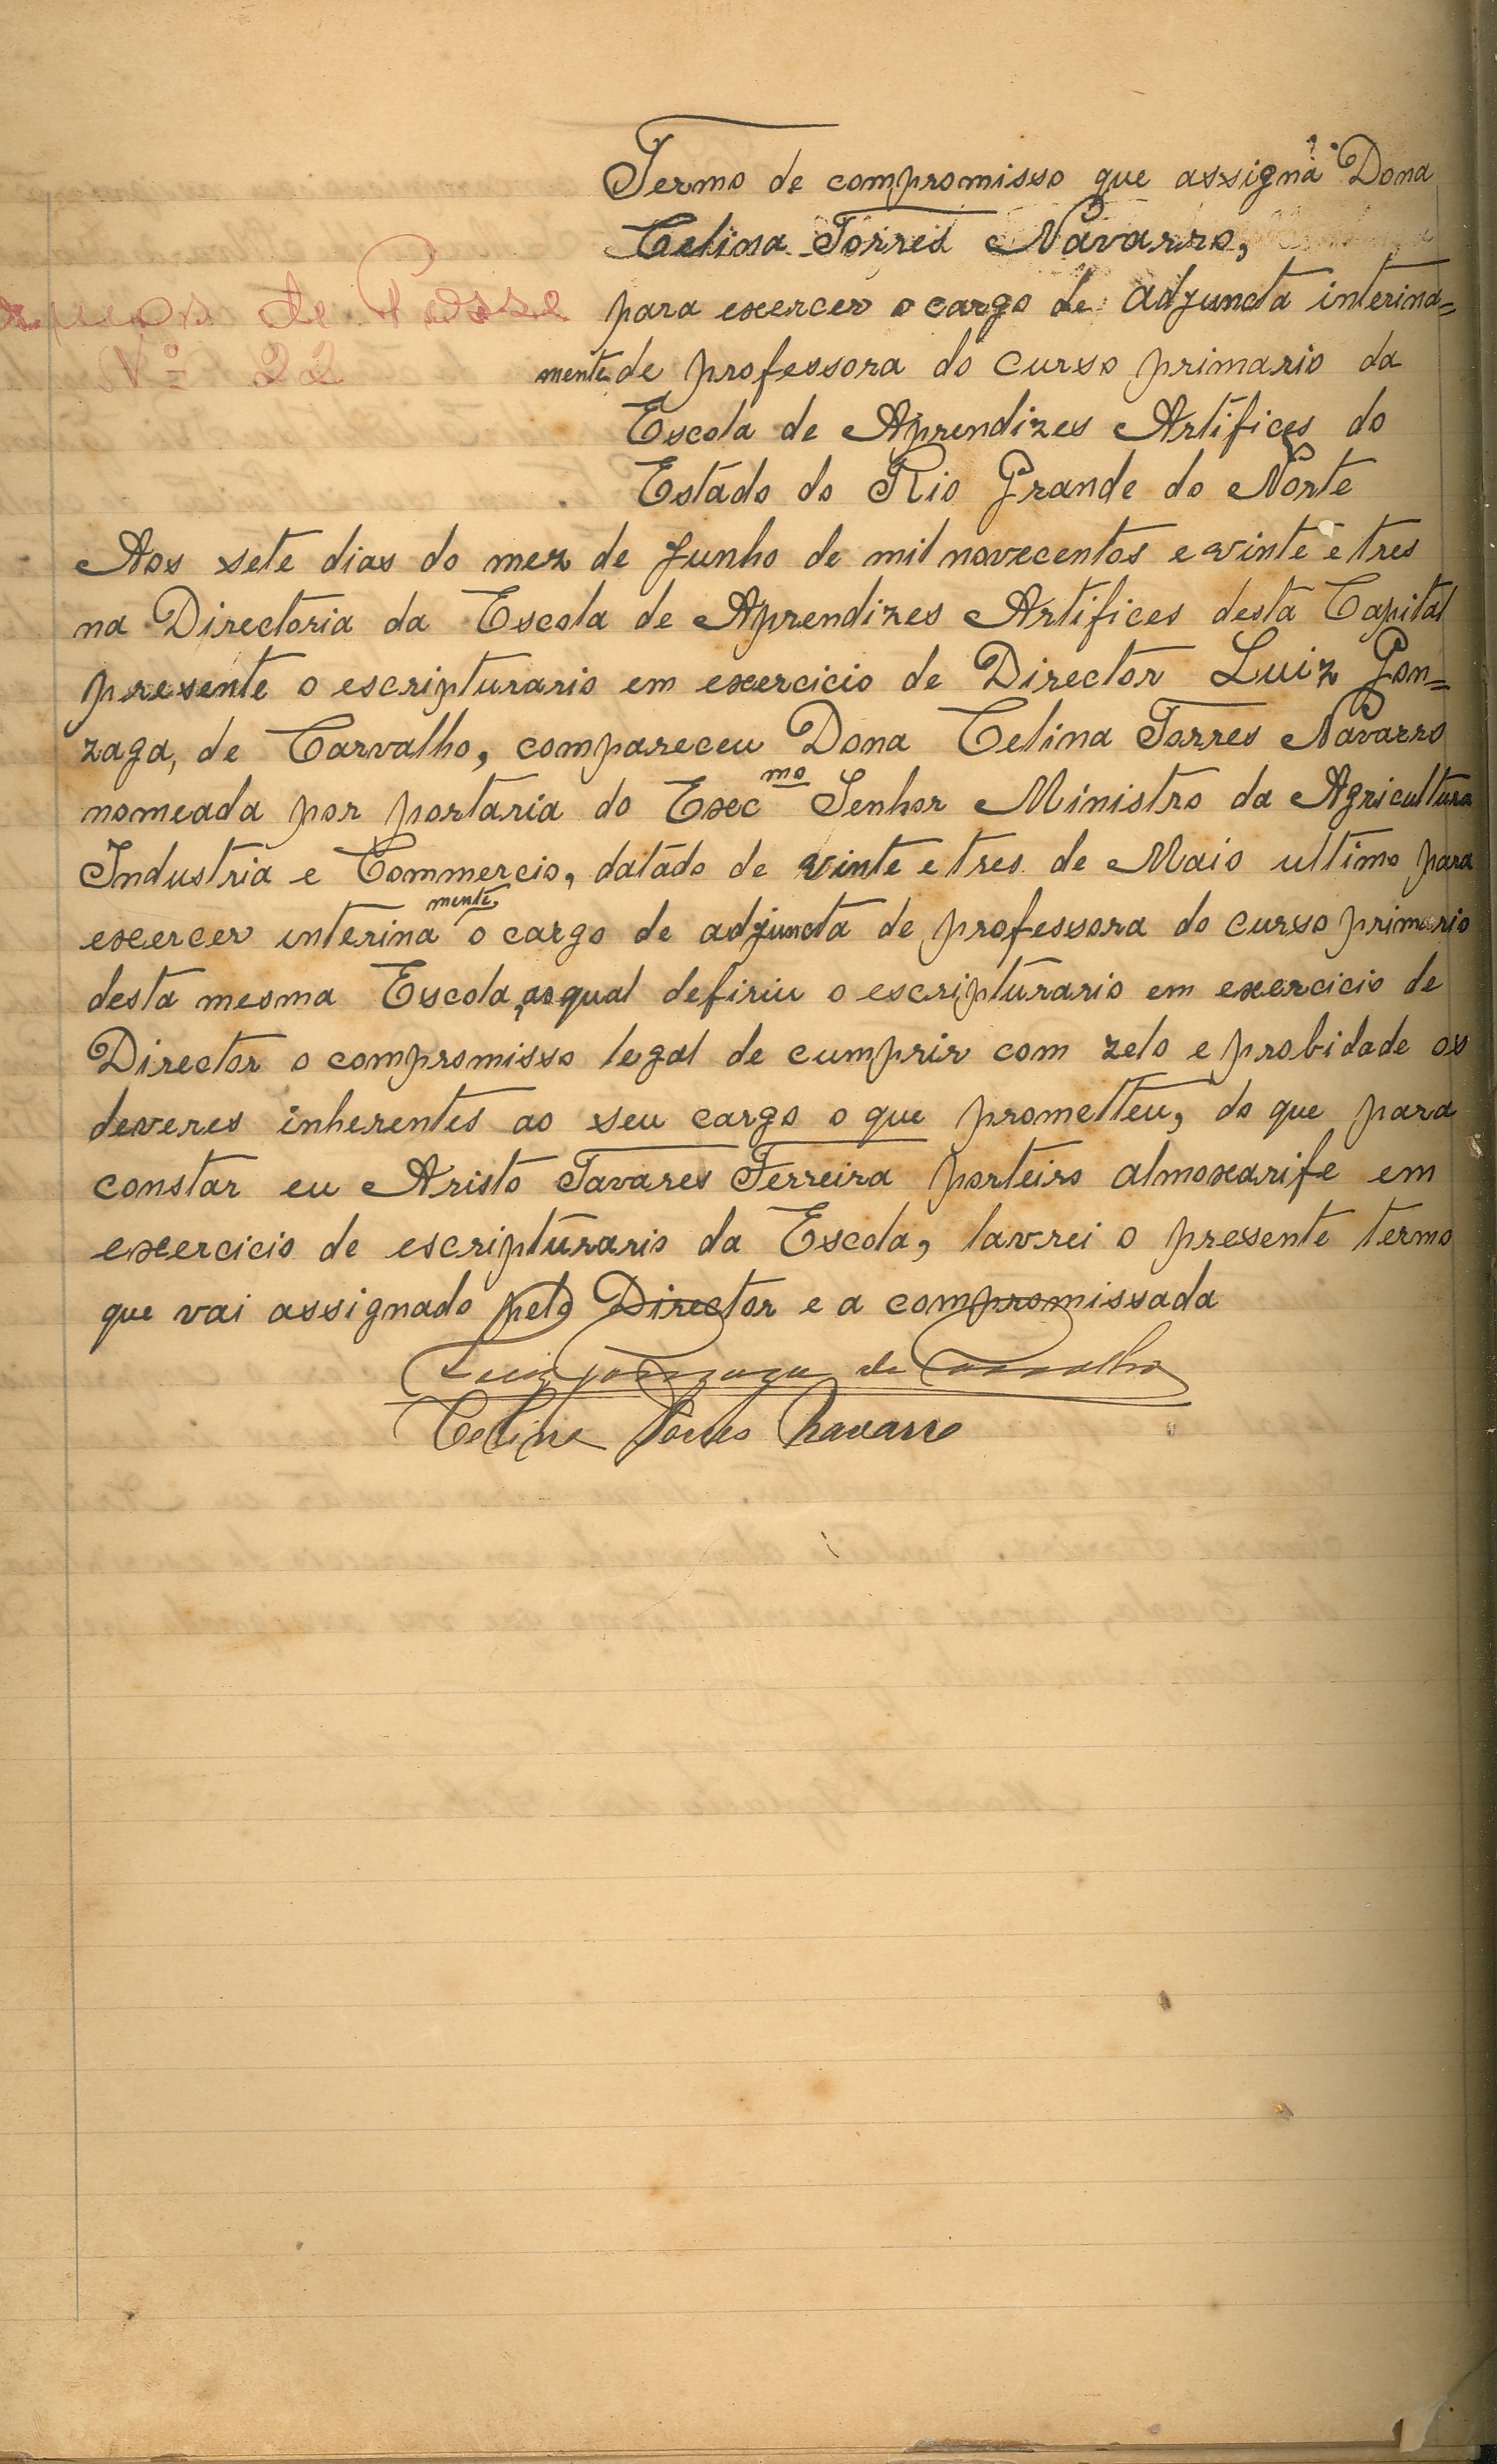 Termo de compromisso que assigna Dona
Celina Torres Navarro,
para exercer o cargo de adjuncta interina=
de Posse
mente de professora do curso primario da
Nº 22
Escola de Aprendizes Artifices do
Estado do Rio Grande do Norte
Aos sete dias do mez de Junho de mil novecentos e vinte e tres
na Directoria da Escola de Aprendizes Artifices desta Capital
presente o escripturario em exercicio de Director Luiz Gon=
zaga, de Carvalho, compareceu Dona Celina Torres Navarro
nomeada por portaria do Exec mo Senhor Ministro da Agricultura
Industria e Commercio, datado de vinte e tres de Maio ultimo para
exercer interina mente o cargo de adjuncta de professora do curso primario
desta mesma Escola, ao qual defiriu o escripturario em exercicio de
Director o compromisso legal de cumprir com zelo e probidade os
deveres inherentes ao seu cargo o que prometteu, do que para
constar eu Aristo Tavares Ferreira porteiro almoxarife em
exercicio de escripturario da Escola, lavrei o presente termo
que vai assignado pelo Director e a compromissada
Luiz Gonzaga de Carvalho
Celina Torres Navarro